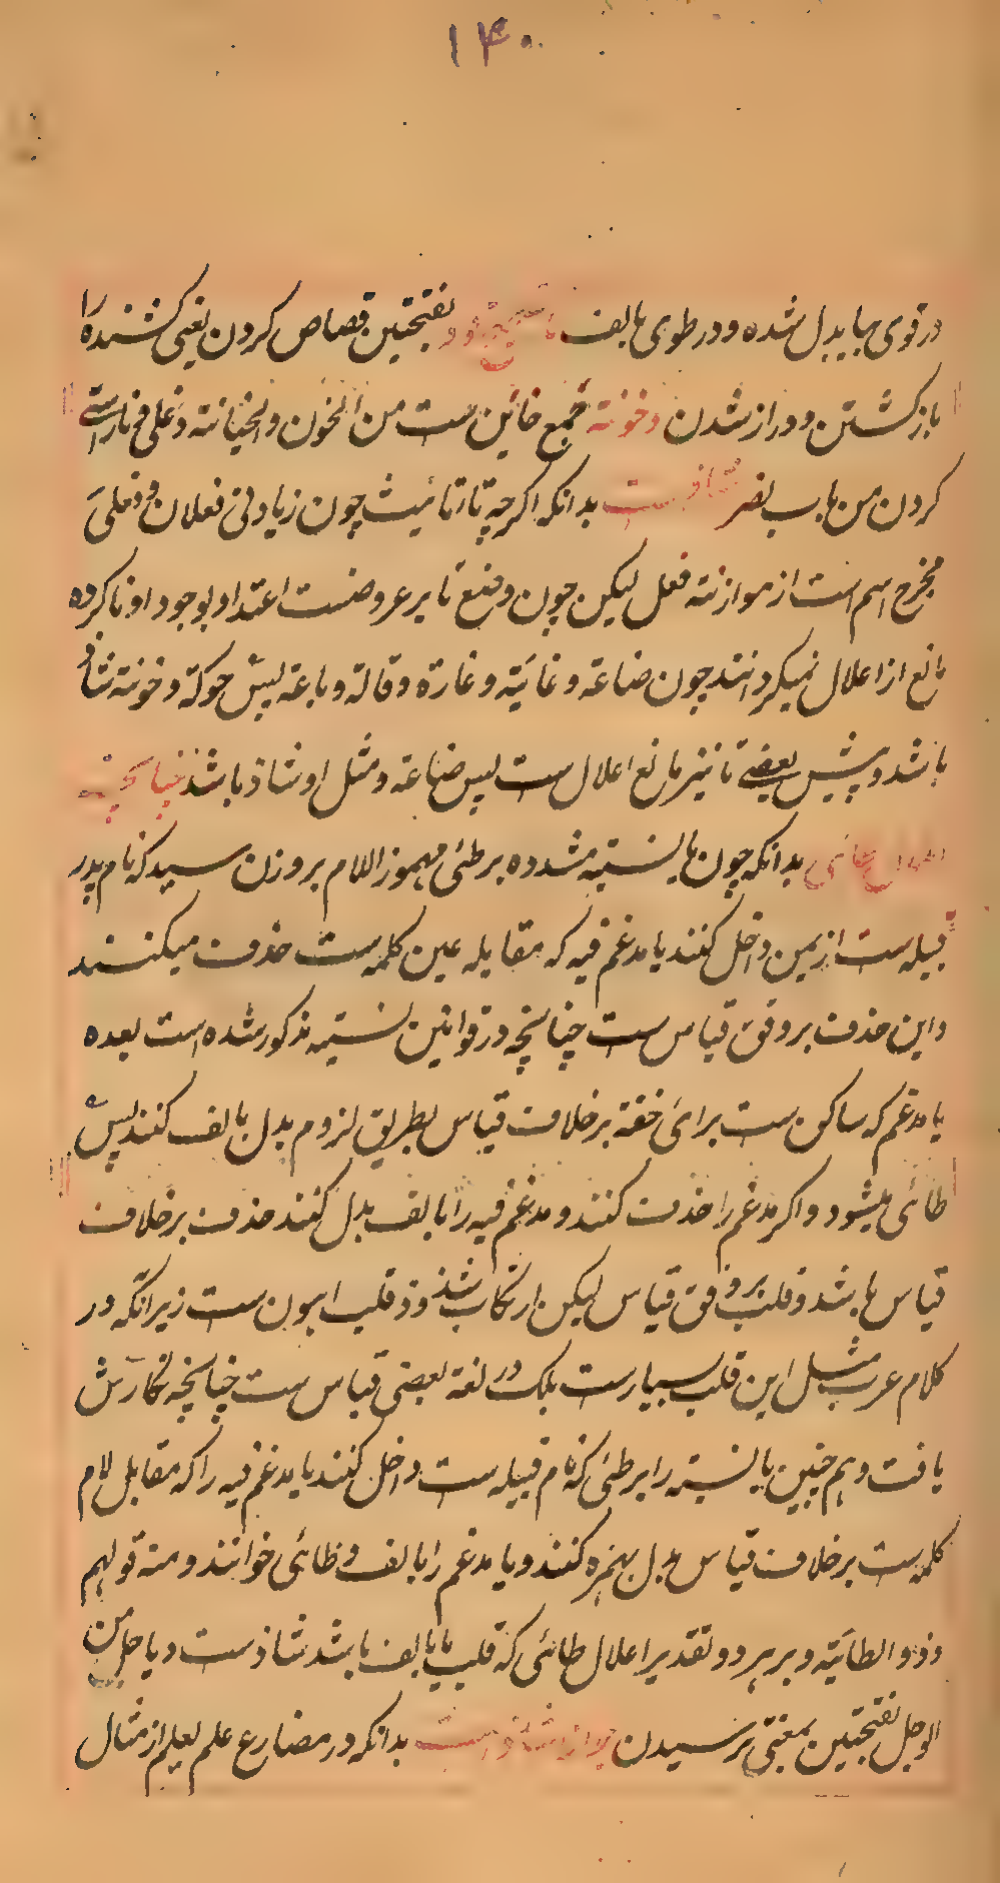 ۱۴۰
در قوی بیا بدل شده و در طوی بالف و قود بفتحتین قصاص کردن یعنی کشنده را
باز کشتن و دراز شدن وخونة جمع خائن ست من الخون والخیانة دغلی و ناراستی
کردن من باب نصر شاذ است بدانکه اکرچه تاء تانیث چون زیادتی فعلان و فعلی
مخرج اسم است از موازنه فعل لیکن چون وضع تا بر عروضست اعتداد بوجود او ناکرده
مانع از اعلال نمیکردانند چون صاغة و غایة و غارة و قالة و باعة پس حوکة و خونة شاذ
باشد و پیش بعضی تا نیز مانع اعلال ست پس صاغة و مثل او شاذ باشد چنانچه
اعلال طائی بدانکه چون یا نسبة مشدده بر طئی مهموز اللام بر وزن سید که نام پدر
قبیله ست از یمن داخل کنند یا مدغم فیه که مقابله عین کلمه ست حذف میکنند
و این حذف بر وفق قیاس ست چنانچه در قوانین نسبة مذکور شده است بعده
یا مدغم که ساکن ست برای خفة بر خلاف قیاس بطریق لزوم بدل بالف کنند پس
طائی میشود و اکر مدغم را حذف کنند و مدغم فیه را بالف بدل کنند حذف بر خلاف
قیاس باشد و قلب بر وفق قیاس لیکن ارتکاب شذوذ در قلب اهون ست زیرانکه در
کلام عرب مثل این قلب بسیارست بلک در لغة بعضی قیاس ست چنانچه نکارش
یافت و هم چنین یا نسبة را بر طئی که نام قبیله ست داخل کنند یا مدغم فیه را که مقابل لام
کلمه ست بر خلاف قیاس بدل بهمزه کنند و یا مدغم را بالف و طائی خوانند و منه قولهم
وذو الطائیة و بر هر دو تقدیر اعلال طائی که قلب یا بالف باشد شاذ ست و یاجل من
الوجل بفتحتین بمعنی ترسیدن شاذ است بدانکه در مضارع علم یعلم از مثال